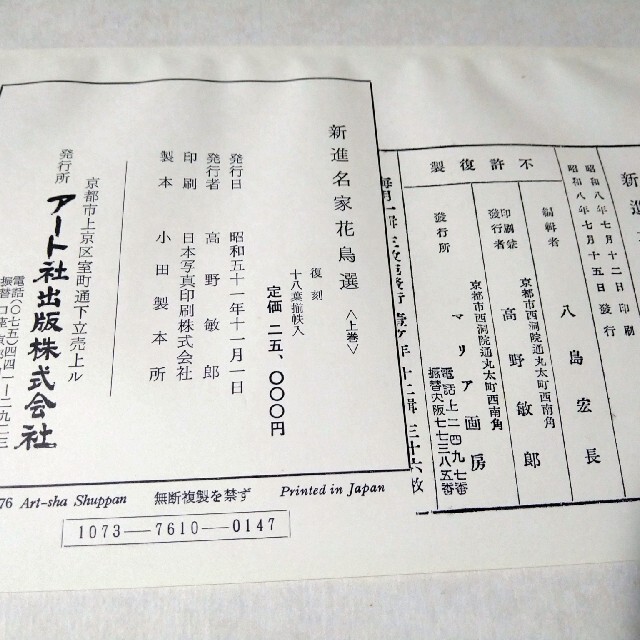 新進名家花鳥選〈上巻〉
復刻
十八葉揃帙入
定価 二五、〇〇〇円
発行日 昭和五十一年十一月一日
発行者 高野敏郎
印刷 日本写真印刷株式会社
製本 小田製本所
京都市上京区室町通下立売上ル
発行所 アート社出版株式会社
電話(〇七五)四四一
76 Art-sha Shuppan 無断複製を禁ず Printed in Japan
1073—7610—0147
新進
昭和八年七月十二日印刷
昭和八年七月十五日發行
不許復製
編輯者 八島宏長
京都市西洞院通丸太町西南角
印刷兼發行者 高野敏郎
京都市西洞院通丸太町西南角
發行所 マリア画房
電話上二四九七番
振替大阪七七三八五番